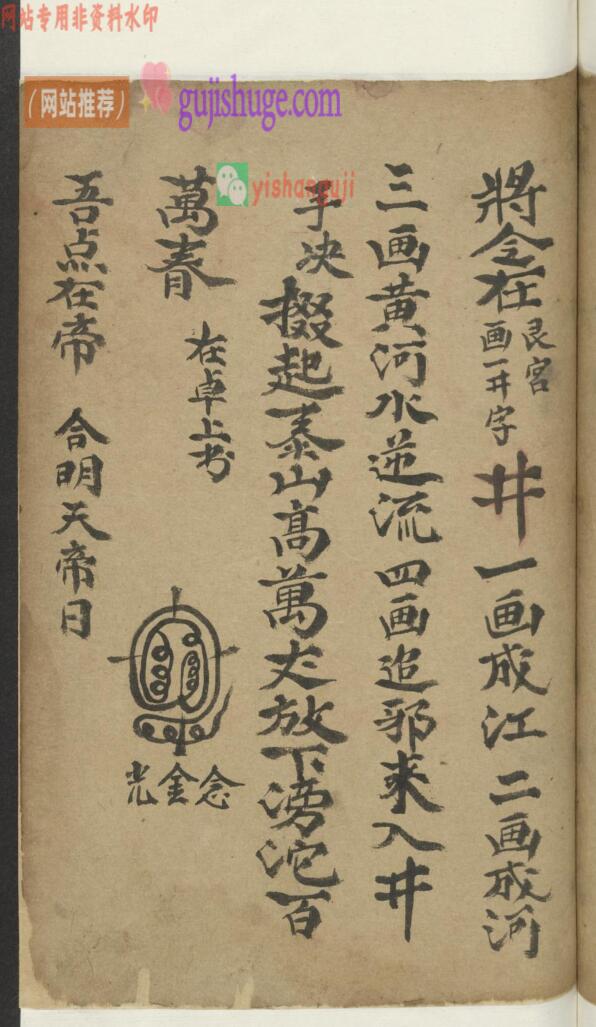 网站专用非资料水印
（网站推荐）
gujishuge.com
yishanguji
將令在
艮宮
画一井字
井 一画成江 二画成河
三画黄河水逆流 四画追邪来入井
手决
掇起泰山高萬丈放下滂沱百
萬春 在卓上书
念金光
吾点在帝 合明天帝日